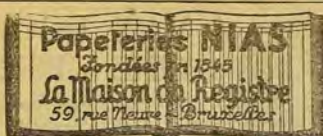 Papeteries NIAS
Fondées en 1845
La Maison du Registre
59, rue Neuve - Bruxelles